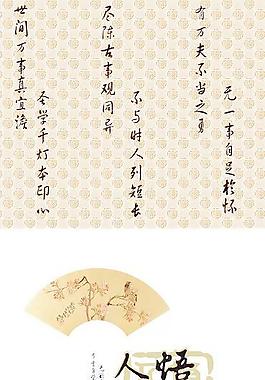 有万夫不当之勇
无一事自足於怀
尽陈古事观同异
不与时人列短长
世间万事真宜淡
圣学千灯本印心
悟
人